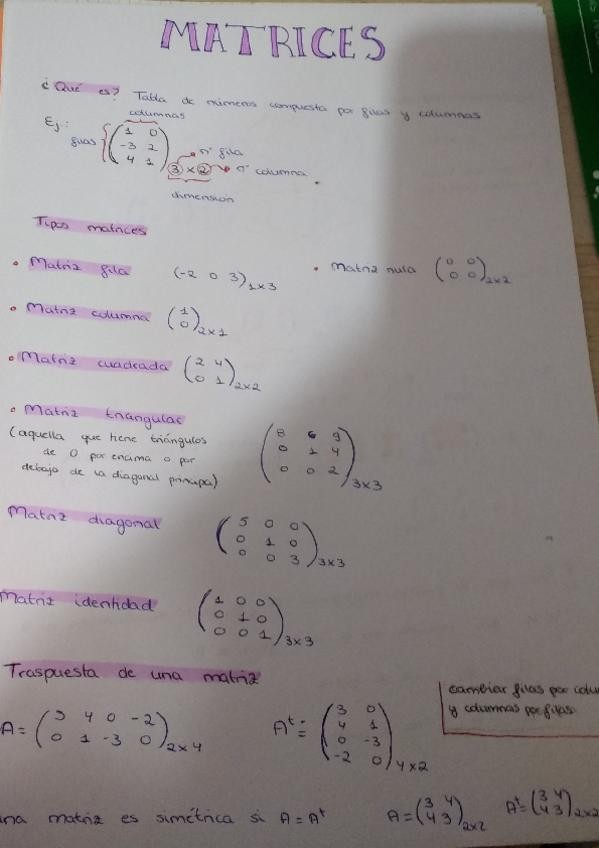 MATRICES
¿Qué es? Tabla de números compuesta por filas y columnas
columnas
Ej.:
filas
1 0
-3 2
4 1
3 x 2
nº fila
nº columna
dimensión
Tipos matrices
• Matriz fila (-2 0 3) 1x3
• Matriz nula
0 0
0 0
2x2
• Matriz columna
1
0
2x1
• Matriz cuadrada
2 4
0 1
2x2
• Matriz triangular
(aquella que tiene triángulos
de 0 por encima o por
debajo de la diagonal principal)
8 6 9
0 1 4
0 0 2
3x3
Matriz diagonal
5 0 0
0 1 0
0 0 3
3x3
Matriz identidad
1 0 0
0 1 0
0 0 1
3x3
Traspuesta de una matriz
cambiar filas por colu
y columnas por filas.
A =
3 4 0 -2
0 1 -3 0
2x4
Aᵗ =
3 0
4 1
0 -3
-2 0
4x2
una matriz es simétrica si A = Aᵗ
A =
3 4
4 3
2x2
Aᵗ =
3 4
4 3
2x2